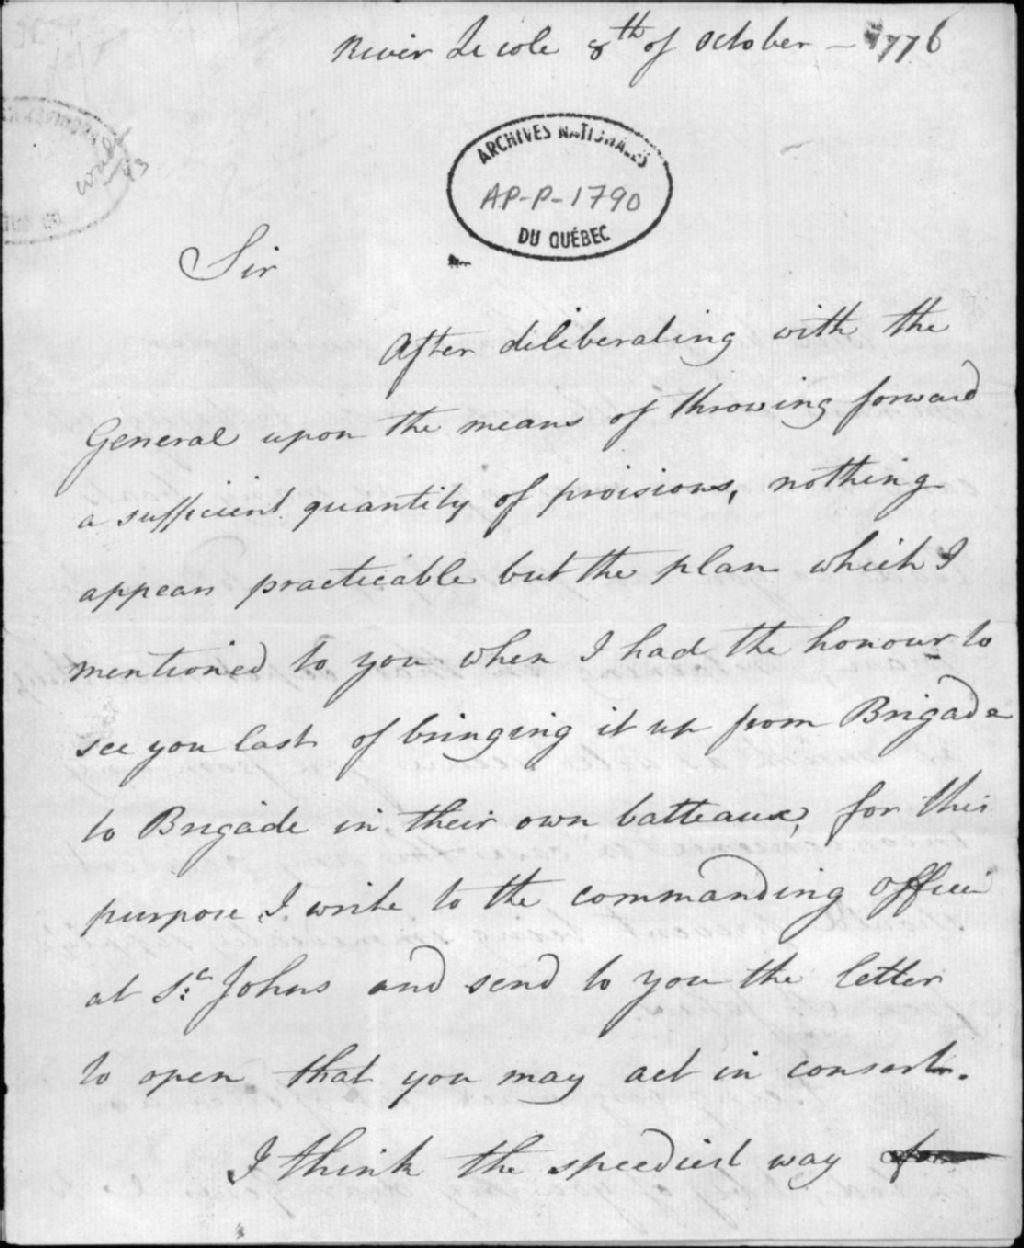 River Le cole 8th of October - 1776
ARCHIVES NATIONALES
AP-P-1790
DU QUÉBEC
Sir
After deliberating with the
General upon the means of throwing forward
a sufficient quantity of proisions, nothing
appears practicable but the plan which I
mentioned to you when I had the honour to
see you last of bringing it up from Brigade
to Brigade in their own batteaux, for this
purpose I write to the commanding officer
at St. Johns and send to you the letter
to open that you may act in consert.
I think the speediest way